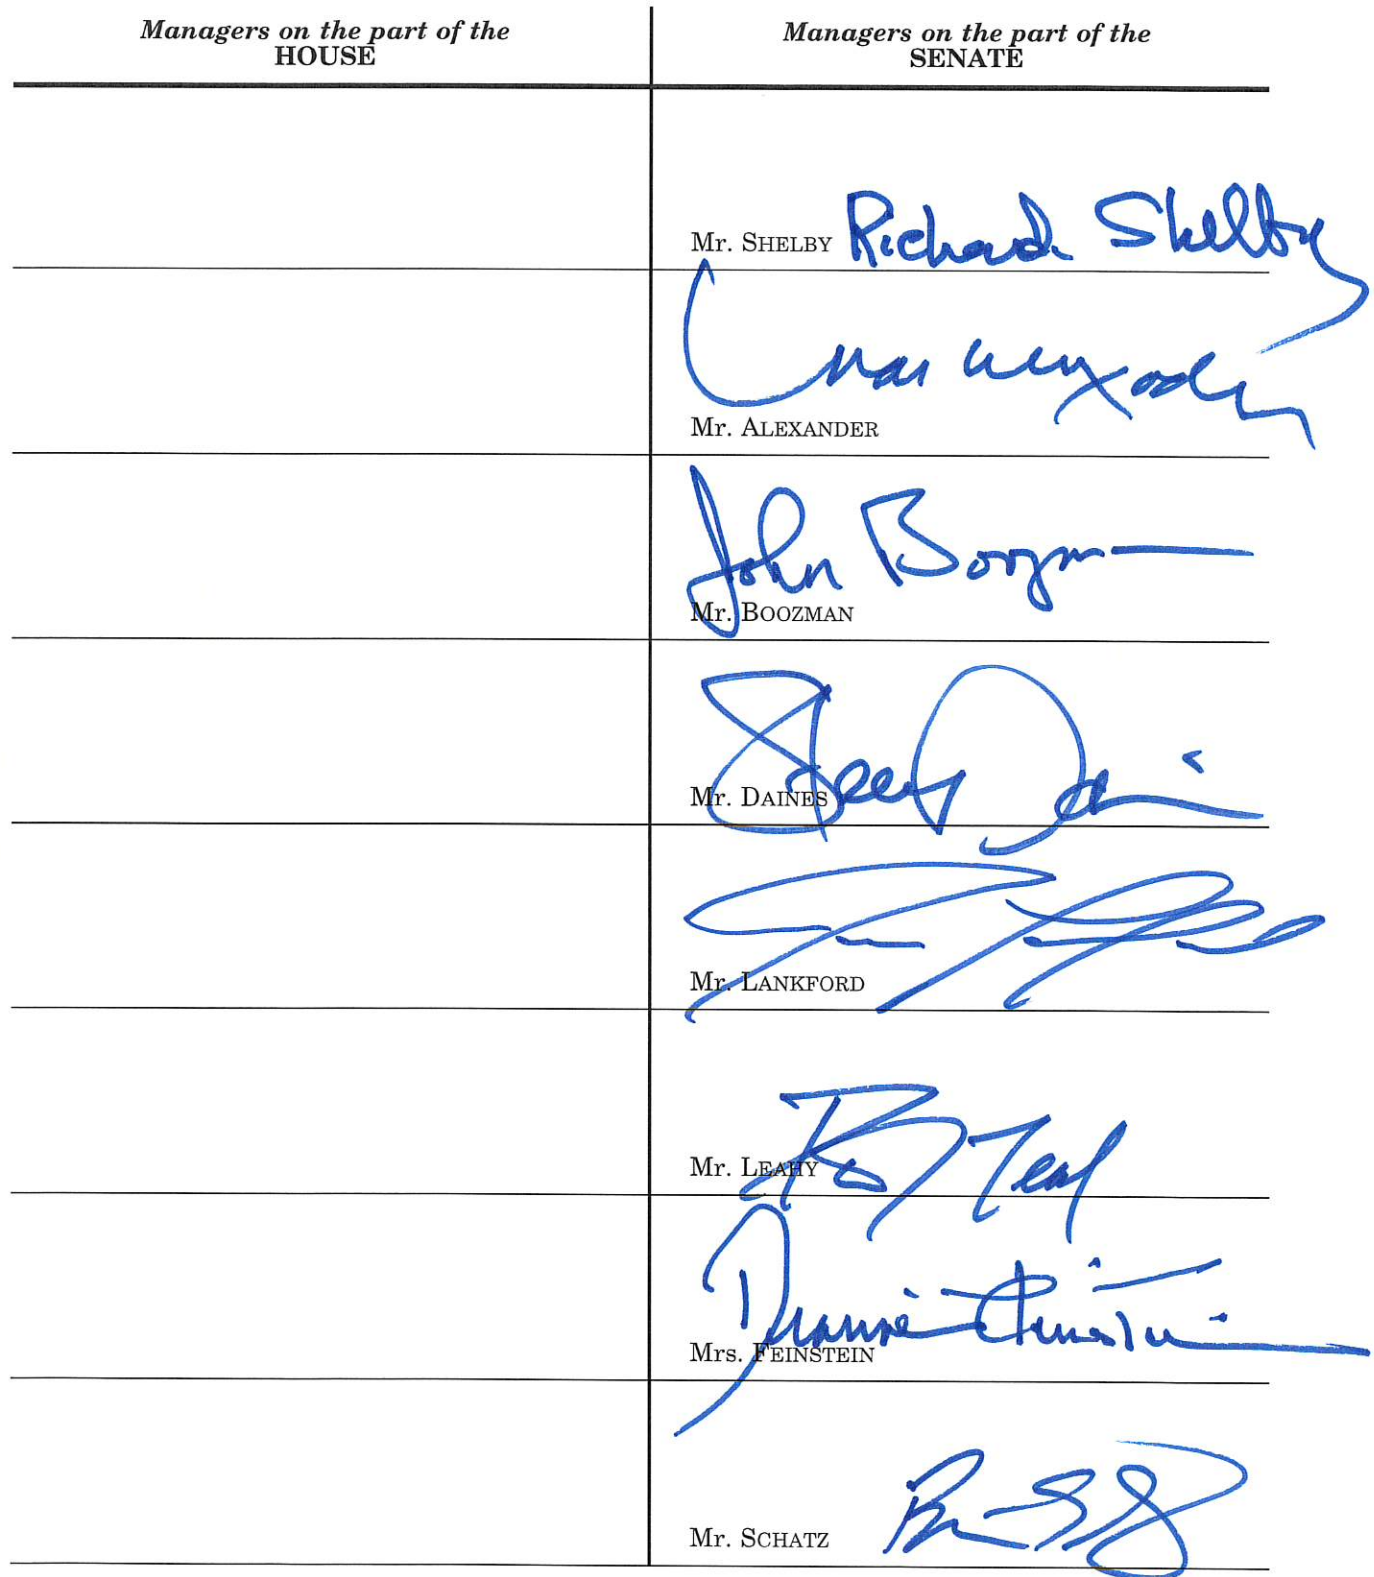 Managers on the part of the
HOUSE
Managers on the part of the
SENATE
Mr. SHELBY Richard Shelby
Mr. ALEXANDER
John Boozman
Mr. BOOZMAN
Mr. DAINES
Mr. LANKFORD
Mr. LEAHY
Dianne Feinstein
Mrs. FEINSTEIN
Mr. SCHATZ